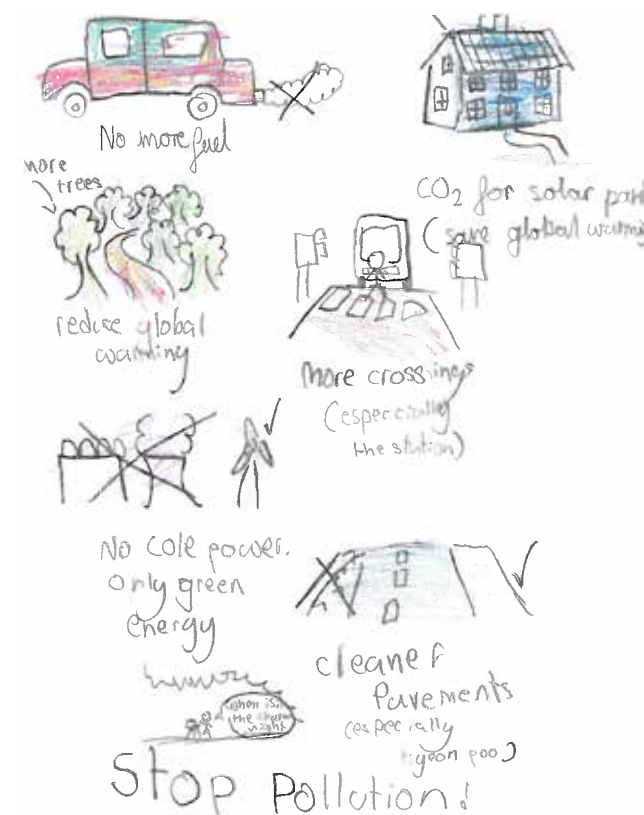 No more fuel
more
trees
CO2 for solar
(save global
reduce global
warming
more crossings
(especcially
the station)
No cole power.
only green
energy
cleaner
Pavements
(especially
poo)
when is
the
night
Stop Pollution!